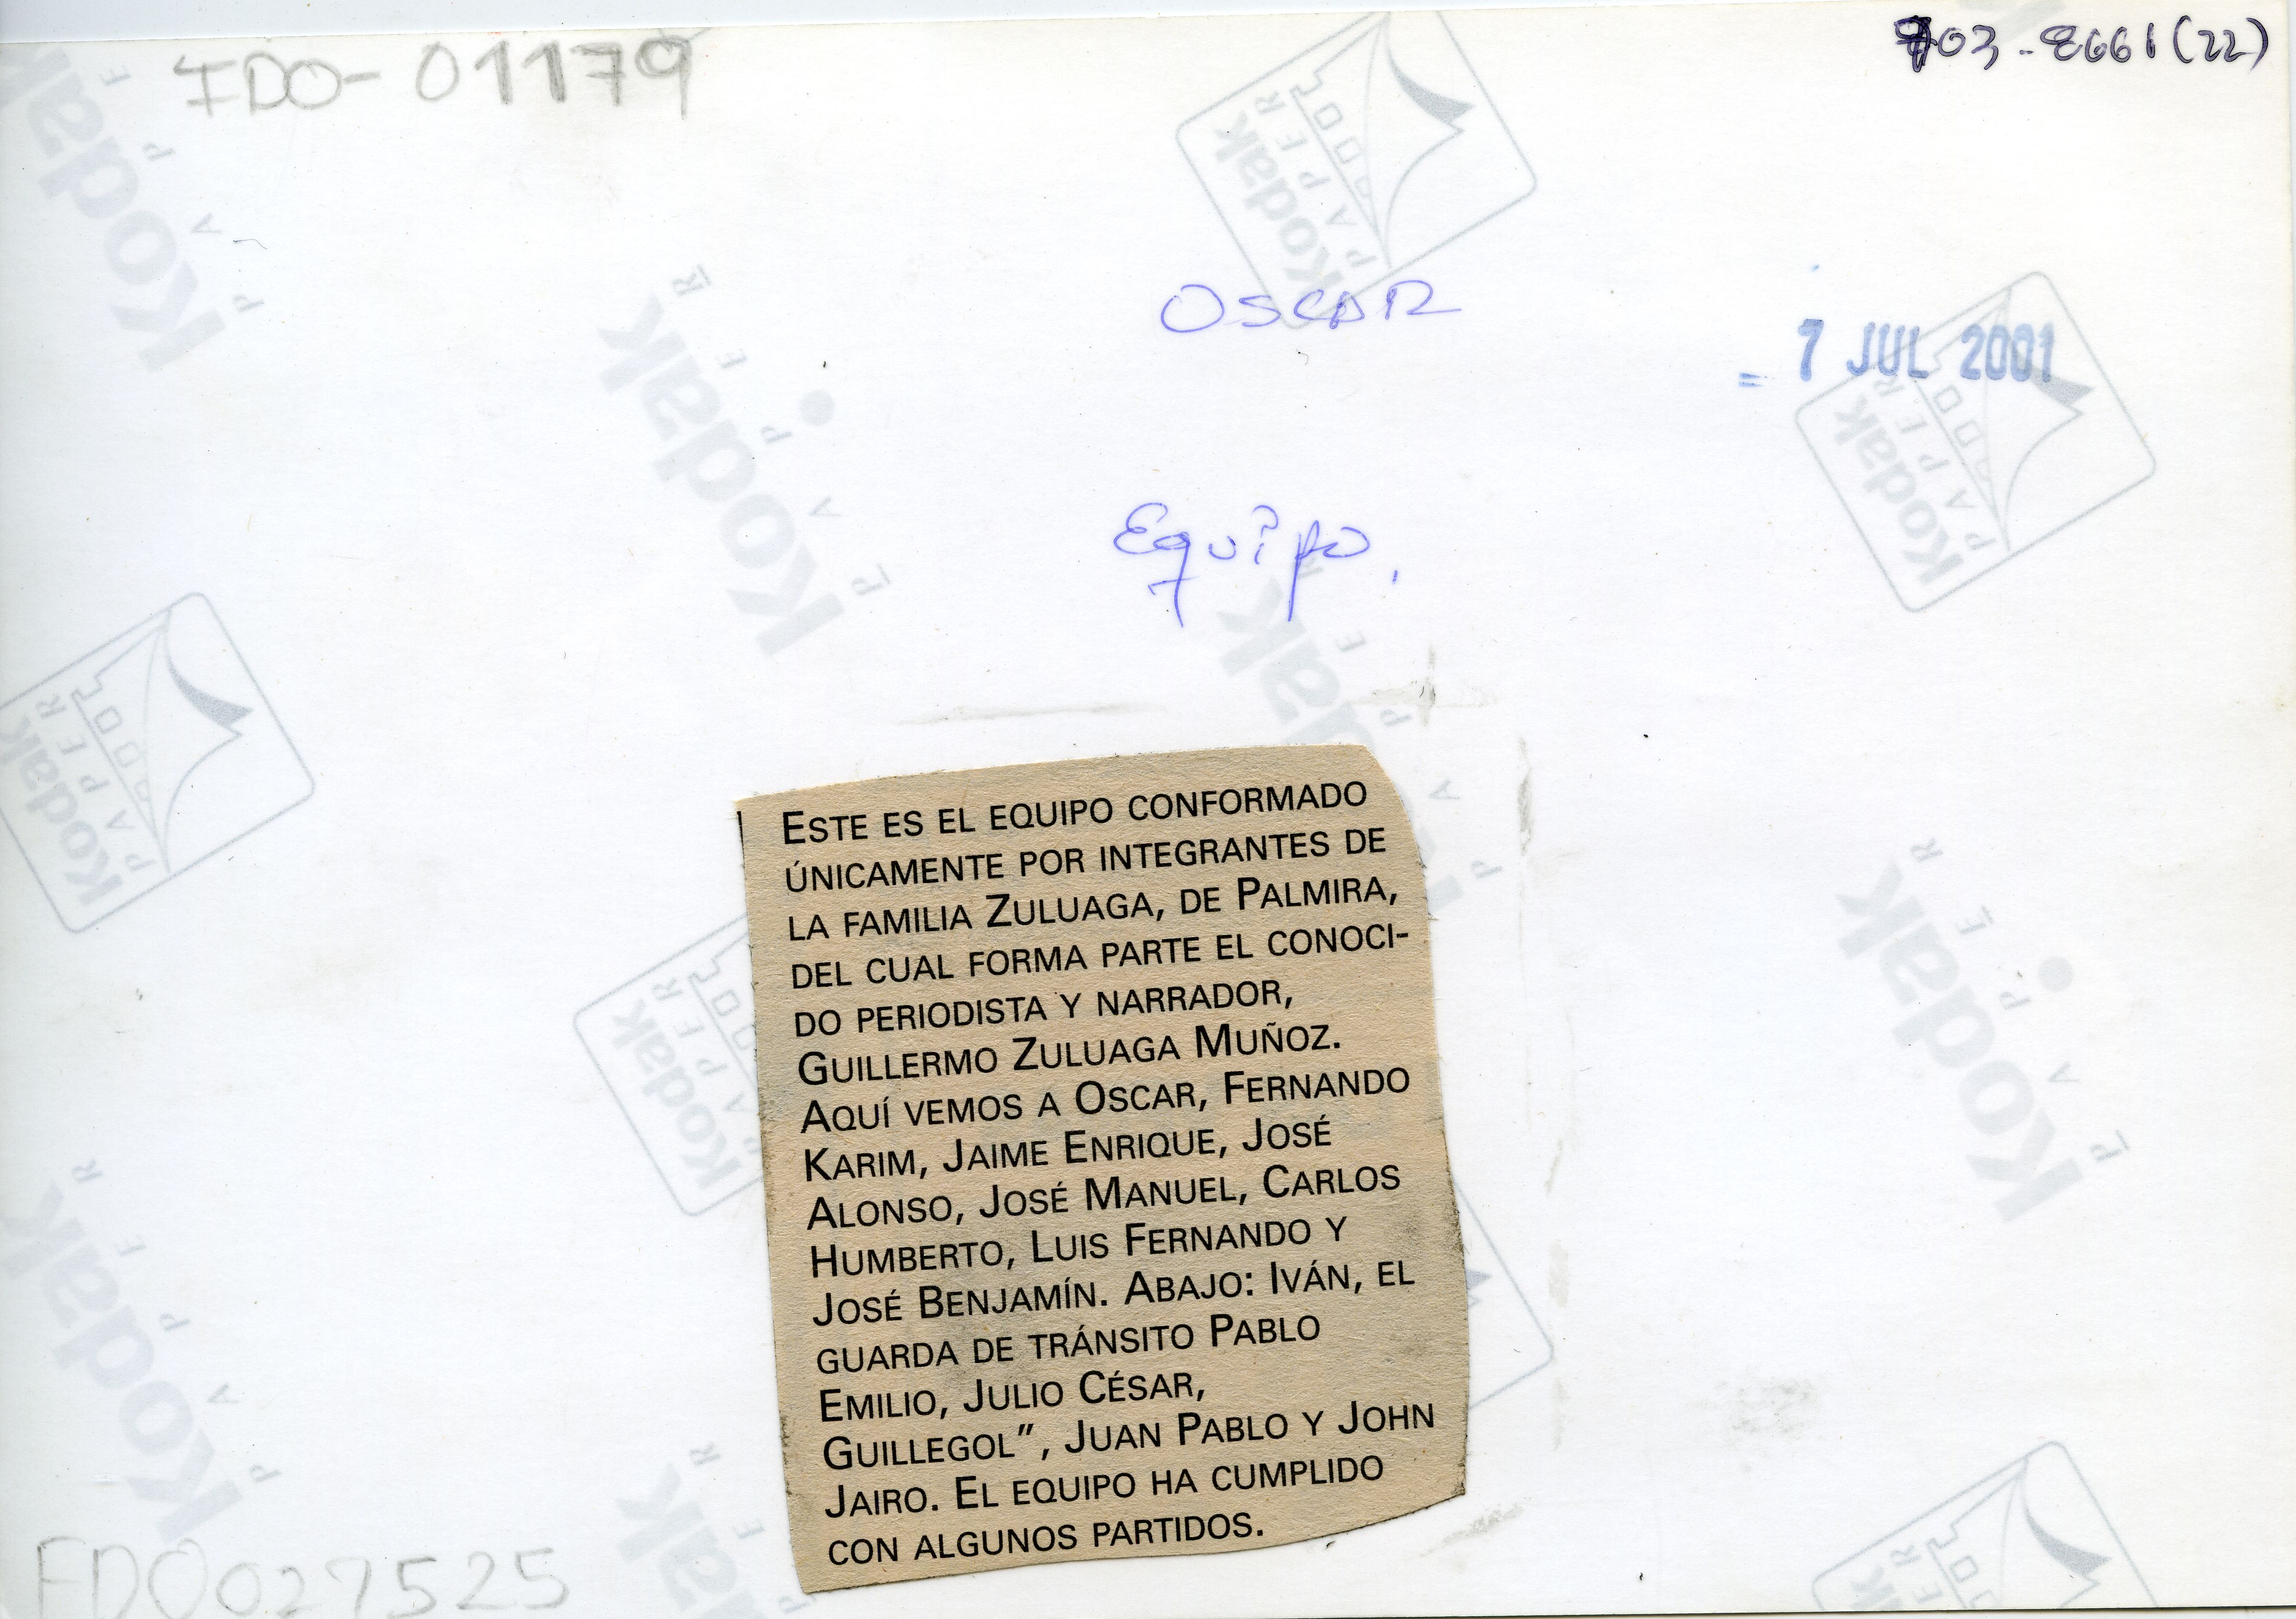 IDO-01179
703-8661(22)
OSCAR
= 7 JUL 2001
Equipo.
ESTE ES EL EQUIPO CONFORMADO
ÚNICAMENTE POR INTEGRANTES DE
LA FAMILIA ZULUAGA, DE PALMIRA,
DEL CUAL FORMA PARTE EL CONOCI-
DO PERIODISTA Y NARRADOR,
GUILLERMO ZULUAGA MUÑOZ.
AQUÍ VEMOS A OSCAR, FERNANDO
KARIM, JAIME ENRIQUE, JOSÉ
ALONSO, JOSÉ MANUEL, CARLOS
HUMBERTO, LUIS FERNANDO Y
JOSÉ BENJAMÍN. ABAJO: IVÁN, EL
GUARDA DE TRÁNSITO PABLO
EMILIO, JULIO CÉSAR,
GUILLEGOL", JUAN PABLO Y JOHN
JAIRO. EL EQUIPO HA CUMPLIDO
CON ALGUNOS PARTIDOS.
FDO027525
Kodak
PAPER